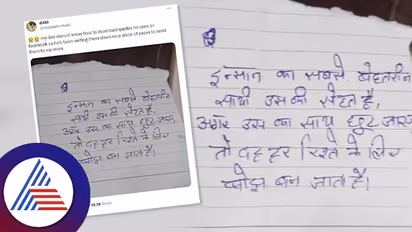 my dad doesn't know how to download quotes he sees on
facebook so he's been writing them down on a piece of paper to send
them to my mom.
इन्सान का सबसे बेहतरीन
साथी उसकी सेहत है,
अगर उस का साथ छुट जाए
तो वह हर रिश्ते के लिए
बोझ बन जाता है।
इन्सान का सबसे बेहतरीन
साथी उसकी सेहत है,
अगर उस का साथ छुट जाए
तो वह हर रिश्ते के लिए
बोझ बन जाता है।